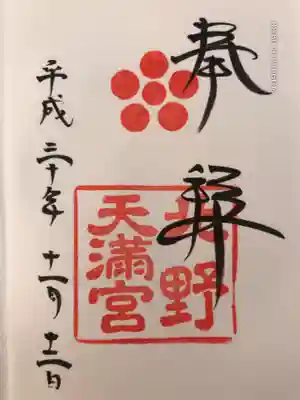 奉拝
北野
天満宮
平成三十年十一月十二日